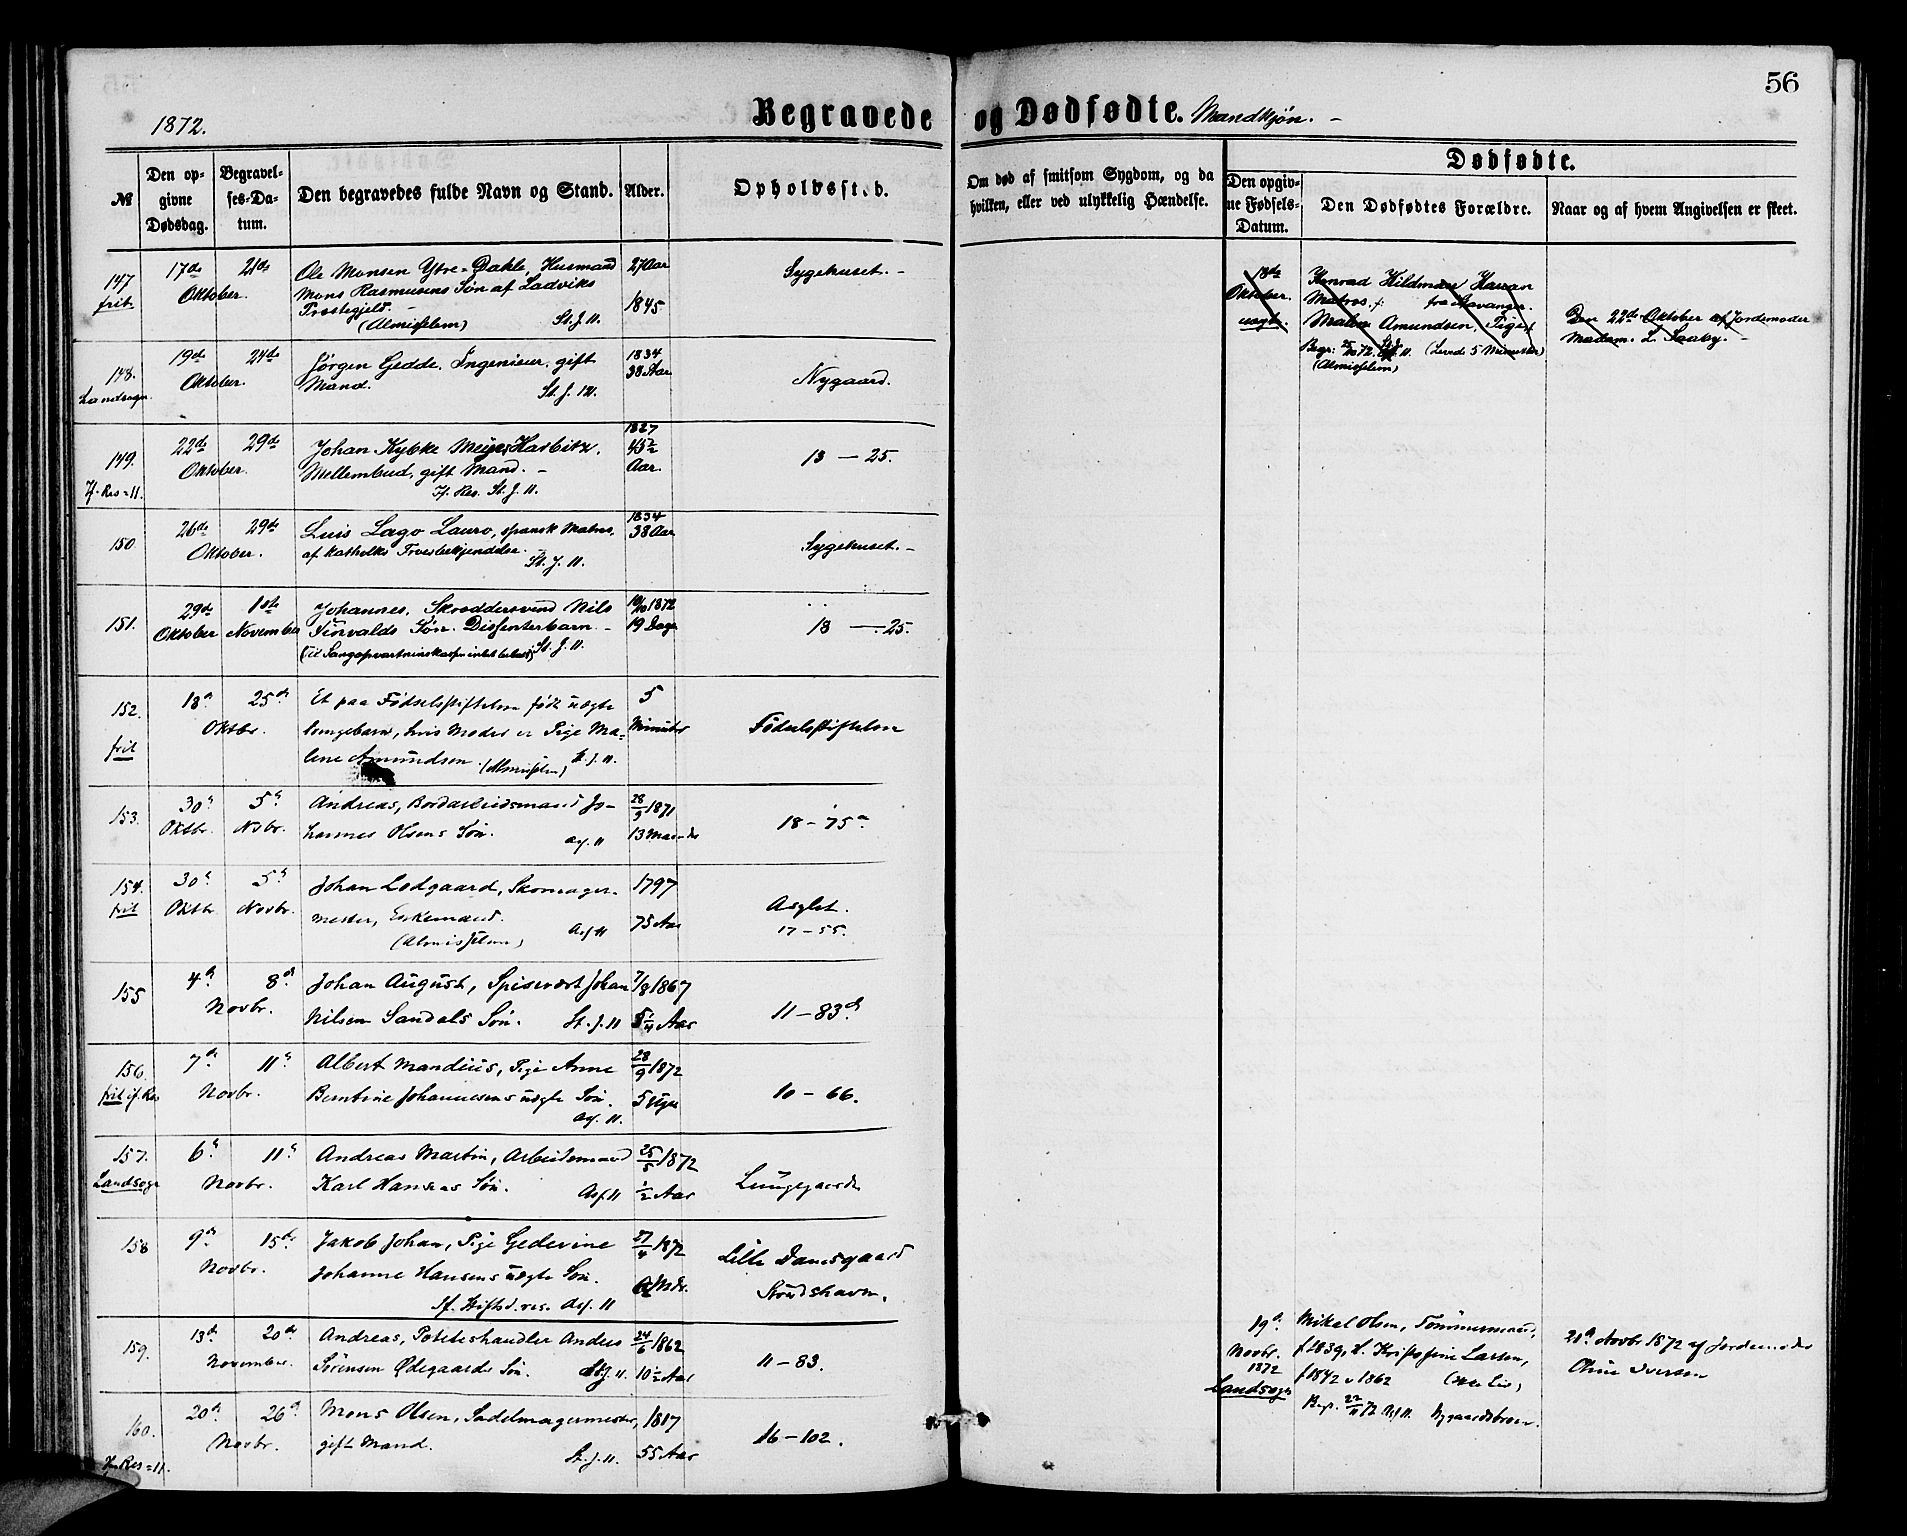 56
1872.
Begravede og Dødfødte. Mandkjøn. -
№
Den opgivne Dødsdag.
Begravelses-Datum.
Den begravedes fulde Navn og Stand.
Alder.
Opholdssted.
Om død af smitsom Sygdom, og da
hvilken, eller ved ulykkelig Hændelse.
Dødfødte.
Den opgivne Fødsels-Datum.
Den Dødfødtes Forældre.
Naar og af hvem Angivelsen er skeet.
147 17de 21de Ole Monsen Ytre-Dahle, Husmand 27 Aar Sygehuset. -
frit. Oktober. Mons Rasmusens Søn af Ladviks 1845
Præstegjeld. -
(Almisselem) St. J. 11.
148. 19de 24de Jørgen Gedde, Ingenieur, gift 1834 Nygaard.
Landsogn. Oktober. Mand. St. J. 12. 38 Aar
149. 22de 29de Johan Kybke Meyer Harbitz, 1827 13 - 25.
Oktober. Mellembud, gift Mand. - 45 1/2 Aar.
If. Res = 11. If. Res. St. J. 11.
150 26de 29de Luis Lago Lauro, spansk Matros, 1834 Sygehuset. -
Oktober. af katholsk Troesbekjendelse. - 38 Aar
St. J. 11.
151. 29de 1ste Johannes, Skræddersvend Nils 10/10 1872 13 - 25.
Oktober November Tinvalds Søn. Dissenterbarn. - 19 Dage
St. J. 11.
152. 18de 25de Et paa Fødselsstiftelsen født uægte 5 Fødselsstiftelsen
frit Oktbr. Drengebarn, hvis Moder er Pige Ma- Minuter
lene Amundsen. (Almisselem) St. J. 11.
153. 30te 5te Andreas, Bordarbeidsmand Jo- 28/9 1871 18 - 75a
Oktbr. Nvbr. hannes Olsens Søn. Asf. 11 13 Maaneder
154. 30te 5te Johan Lodgaard, Skomager- 1797 Asylet.
frit Oktbr Novbr. mester, Enkemand. 75 Aar 17 - 55.
(Almisselem) Asf. 11
155 4de 8de Johan August, Spisevært Johan 7/8 1867 11 - 83d
Novbr. Nilsen Sandals Søn. St. J. 11 5 1/4 Aar
156. 7de 11te Albert Mandius, Pige Anne 28/9 1872 10 - 66.
frit if. Res Novbr. Berntine Johannesens uægte Søn. 5 Uger
Asf. 11.
157. 6te 11te Andreas Martin, Arbeidsmand 25/5 1872 Lungegaarden
Landsogn Novbr. Karl Hansens Søn. Asf. 11 1/2 Aar
158 9de 15de Jakob Johan, Pige Gedevine 27/4 1872 Lille Damsgaard
Novbr. Johanne Hansens uægte Søn. Mdr. Strudshavn.
If. Stiftsd. res. Asf. 11
159. 13de 20de Andreas, Poteteshandler Anders 24/6 1862 11 - 83.
November. Sørensen Ødegaards Søn. St. J. 11. 10 1/2 Aar
160. 20de 26de Mons Olsen, Sadelmagermester, 1817 16 - 102.
Novbr. gift Mand. St. J. 11. 55 Aar
If. Res = 11.
18de Oktober. uægte.
Konrad Hildmar Hansen
Matros, fra Stavanger.
Malene Amundsen, Pige
Begr: 25/10 72. St. J. 11. (Levede 5 Minuter)
(Almisselem)
Den 22de Oktober af Jordemoder
Madam. L. Saaby. -
19de Novbr. 1872 Landsogn
Mikal Olsen, Tømmermand,
f. 1839, H. Kristine Larsen,
f 1842 v 1862
Begr. 22/11 72 Asf. 11. Nygaardsbroen.
21de Novbr 1872 af Jordemoder
Oline Iversen